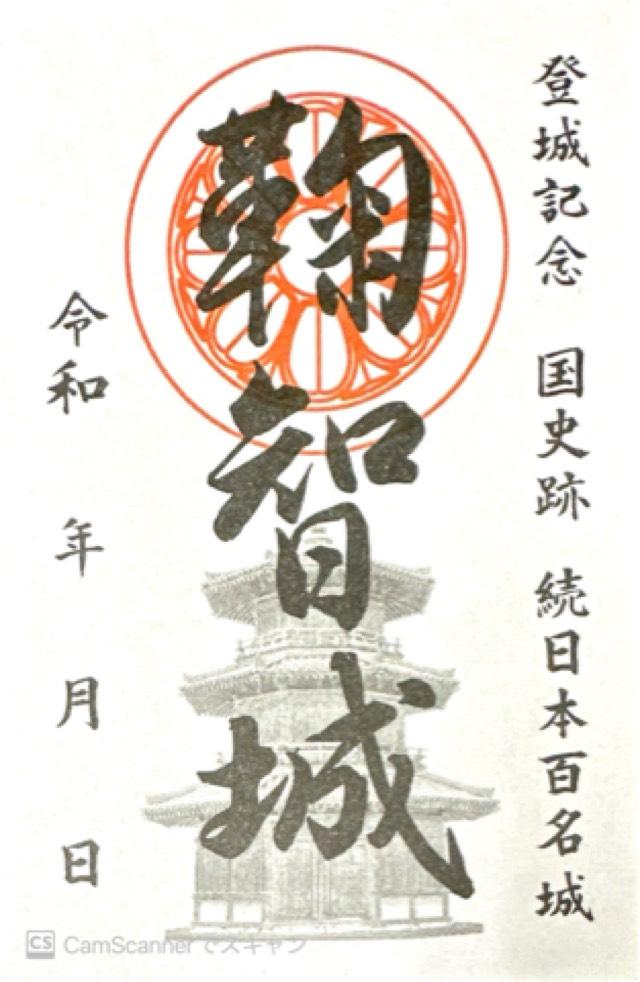 登城記念　国史跡　続日本百名城
鞠智城
令和　年　月　日
CS CamScannerでスキャン